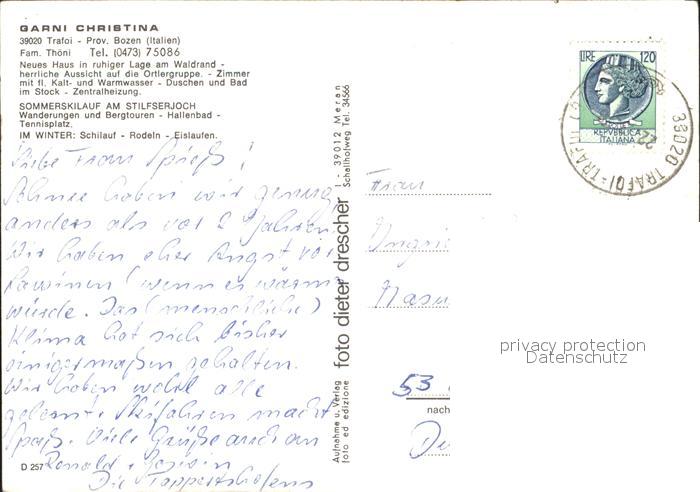 GARNI CHRISTINA
39020 Trafoi - Prov. Bozen (Italien)
Fam. Thöni Tel. (0473) 75086
Neues Haus in ruhiger Lage am Waldrand -
herrliche Aussicht auf die Ortlergruppe. - Zimmer
mit fl. Kalt- und Warmwasser - Duschen und Bad
im Stock - Zentralheizung.
SOMMERSKILAUF AM STILFSERJOCH
Wanderungen und Bergtouren - Hallenbad -
Tennisplatz,
IM WINTER: Schilauf - Rodeln - Eislaufen.
Liebe Frau Spieß!
Schnee haben wir genug
anders als vor 2 Jahren.
Wir haben eher Angst vor
Lawinen (wenn es warm
würde. Das (menschliche)
Klima hat sich bisher
einigermaßen gehalten.
Wir haben wohl alle
gelernt. Skifahren macht
Spaß. Viele Grüße auch an
Ronald +
Die
D 257
Aufnahme u. Verlag
foto ed edizione
foto dieter drescher
I - 39012 Meran
Schallhofweg Tel. 34566
LIRE 120
REPVBBLICA
ITALIANA
39020 TRAFOI - TRAF
Frau
Ingri
53
nach
privacy protection
Datenschutz